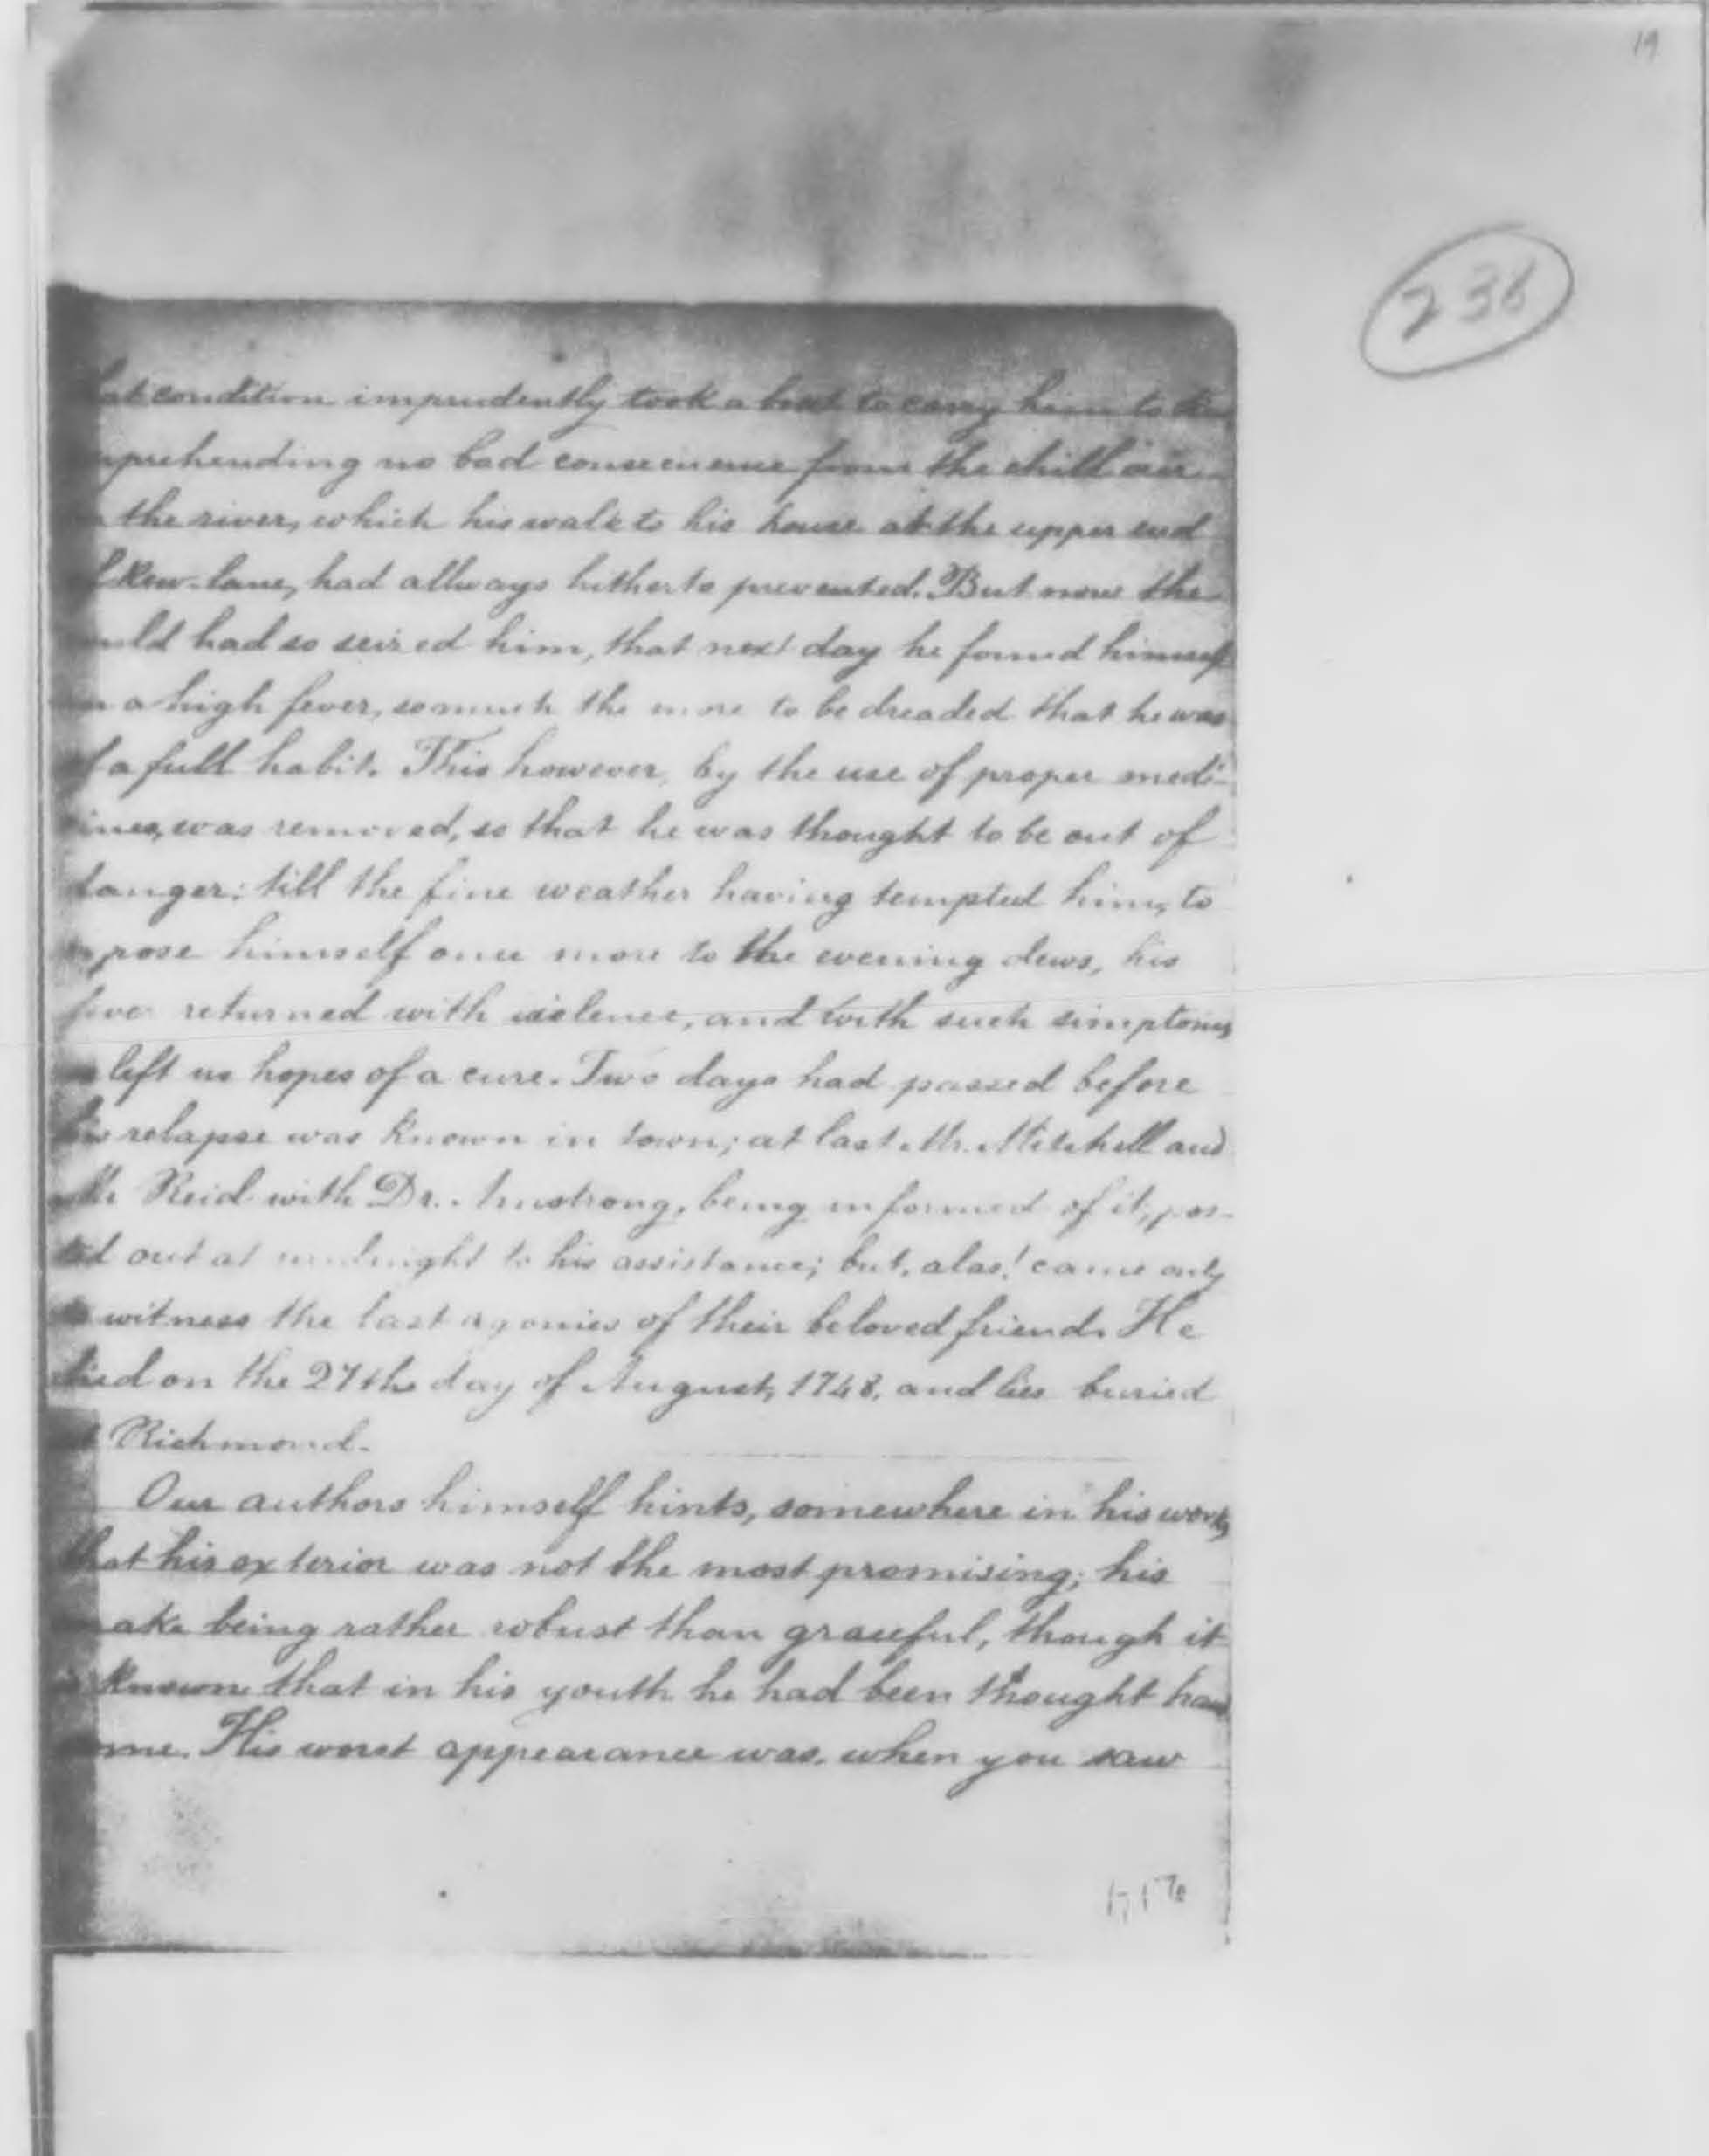 19
236
hat condition imprudently took a boat to carry him to Kew
prehending no bad consecuence from the chill air
the river, which his walk to his house at the upper end
Kew-lane, had allways hitherto prevented. But now the
old had so seized him, that next day he found himself
a high fever, so much the more to be dreaded that he was
f a full habit. This however, by the use of proper medi-
ines, was removed, so that he was thought to be out of
danger: till the fine weather having tempted him, to
pose himself once more to the evening dews, his
fever returned with violence, and with such simptoms
left no hopes of a cure. Two days had passed before
his relapse was known in town; at last Mr. Mitchell and
Mr Reid with Dr. Amstrong, being informed of it, pos-
ted out at midnight to his assistance; but, alas! came only
to witness the last agonies of their beloved friend. He
died on the 27th day of August, 1748, and lies buried
Richmond.
Our authors himself hints, somewhere in his works,
that his exterior was not the most promising; his
ake being rather robust than graceful, though it
known that in his youth he had been thought hand
ome. His worst appearance was, when you saw